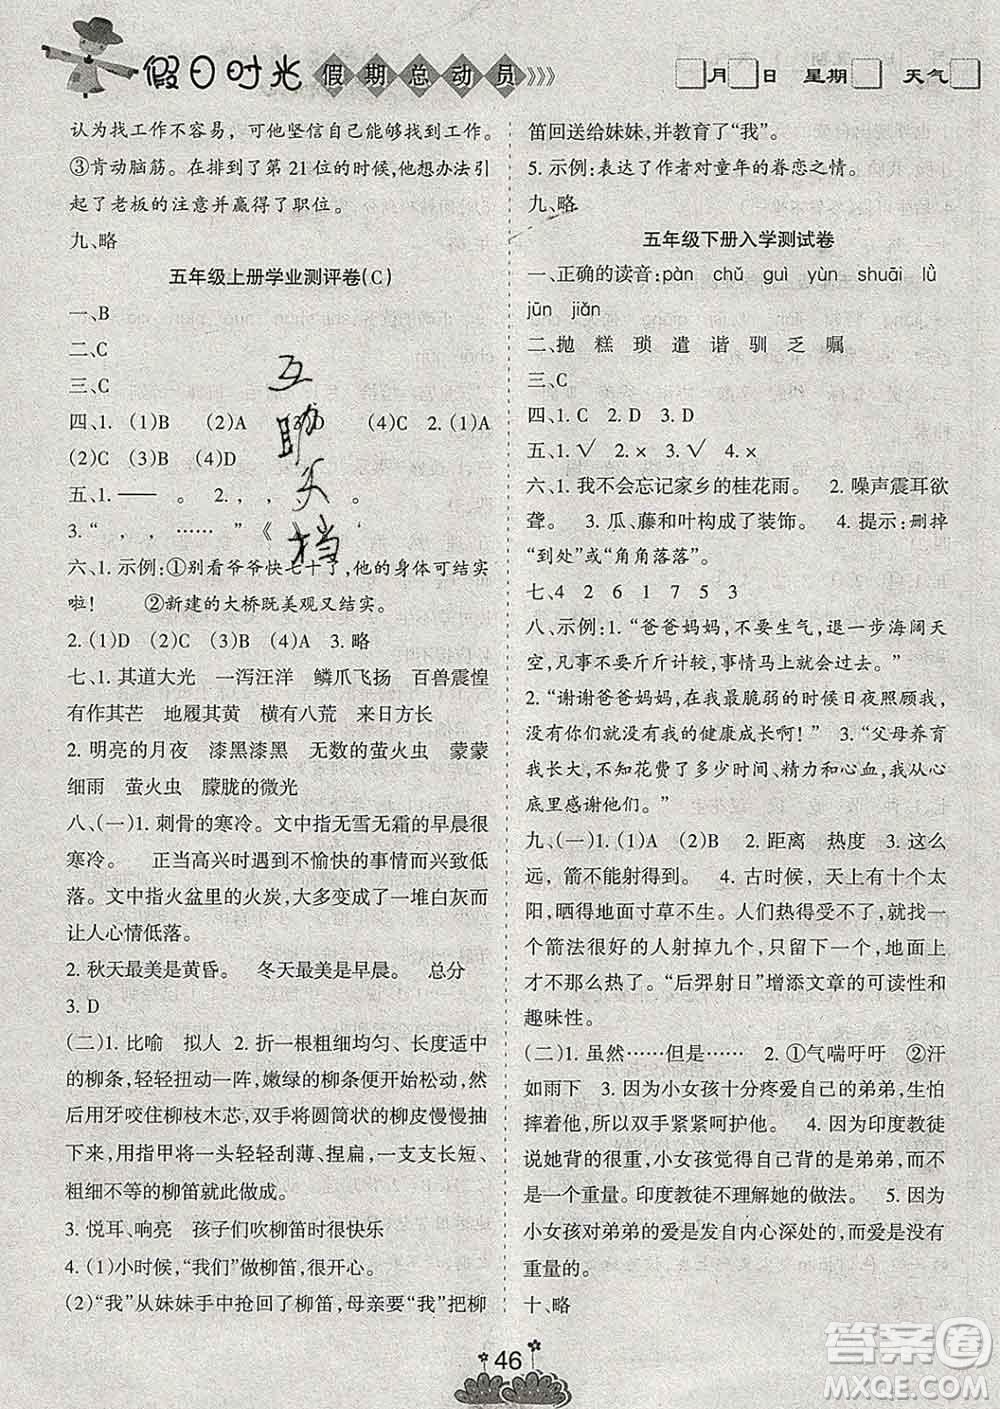 假日时光 假期总动员》》》》
月 日 星期 天气
认为找工作不容易，可他坚信自己能够找到工作。
③肯动脑筋。在排到了第 21 位的时候，他想办法引
起了老板的注意并赢得了职位。
九、略
五年级上册学业测评卷(C)
一、B
二、C
三、C
四、1. (1)B (2)A (3)D (4)C 2. (1)A
(2)C (3)B (4)D
五、1. —— 。 2. ， ， 。
3. “ ， ， ……” 《
六、1. 示例：①别看爷爷快七十了，他的身体可结实
啦！ ②新建的大桥既美观又结实。
2. (1)D (2)C (3)B (4)A 3. 略
七、1. 其道大光 一泻汪洋 鳞爪飞扬 百兽震惶
有作其芒 地履其黄 横有八荒 来日方长
2. 明亮的月夜 漆黑漆黑 无数的萤火虫 蒙蒙
细雨 萤火虫 朦胧的微光
八、(一)1. 刺骨的寒冷。文中指无雪无霜的早晨很
寒冷。 正当高兴时遇到不愉快的事情而情绪低
落。文中指火盆里的火炭，大多变成了一堆白灰而
让人心情低落。
2. 秋天最美是黄昏。 冬天最美是早晨。 总分
3. D
(二)1. 比喻 拟人 2. 折一根粗细均匀、长度适中
的柳条，轻轻扭动一阵，嫩绿的柳条便开始松动，然
后用牙咬住柳枝木芯，双手将圆筒状的柳皮慢慢抽
下，再用指甲将一头轻轻刮薄、捏扁，一支支长短、
粗细不等的柳笛就此做成。
3. 悦耳、响亮 孩子们吹柳笛时很快乐
4. (1)小时候，“我们”做柳笛，很开心。
(2)“我”从妹妹手中抢回了柳笛，母亲要“我”把柳
笛回送给妹妹，并教育了“我”。
5. 示例：表达了作者对童年的眷恋之情。
九、略
五年级下册入学测试卷
一、正确的读音：pàn chǔ guì yùn shuāi lǜ
jūn jiǎn
二、抛 糕 琐 遣 谐 驯 乏 嘱
三、C
四、1. C 2. D 3. D
五、1. √ 2. × 3. √ 4. ×
六、1. 我不会忘记家乡的桂花雨。 2. 噪声震耳欲
聋。 3. 瓜、藤和叶构成了装饰。 4. 提示：删掉
“到处”或“角角落落”。
七、4 2 6 1 7 5 3
八、示例：1. “爸爸妈妈，不要生气，退一步海阔天
空，凡事不要斤斤计较，事情马上就会过去。”
2. “谢谢爸爸妈妈，在我最脆弱的时候日夜照顾我，
没有你们就没有我的健康成长啊！” 3. “父母养育
我长大，不知花费了多少时间、精力和心血，我从心
底里感谢他们。”
九、(一)1. (1)A (2)A 2. 距离 热度 3. 这么
远，箭不能射得到。 4. 古时候，天上有十个太
阳，晒得地面寸草不生。人们热得受不了，就找一
个箭法很好的人射掉九个，只留下一个，地面上才
不那么热了。“后羿射日”增添文章的可读性和
趣味性。
(二)1. 虽然……但是…… 2. ①气喘吁吁 ②汗
如雨下 3. 因为小女孩十分疼爱自己的弟弟，生怕
摔着他，所以双手紧紧呵护他。 4. 因为印度教徒
说她背的很重，小女孩觉得自己背的是弟弟，而不
是一个重量。印度教徒不理解她的做法。 5. 因为
小女孩对弟弟的爱是发自内心深处的，而爱是没有
重量的。
十、略
互
助
文
档
46
答案圈
MXQE.COM